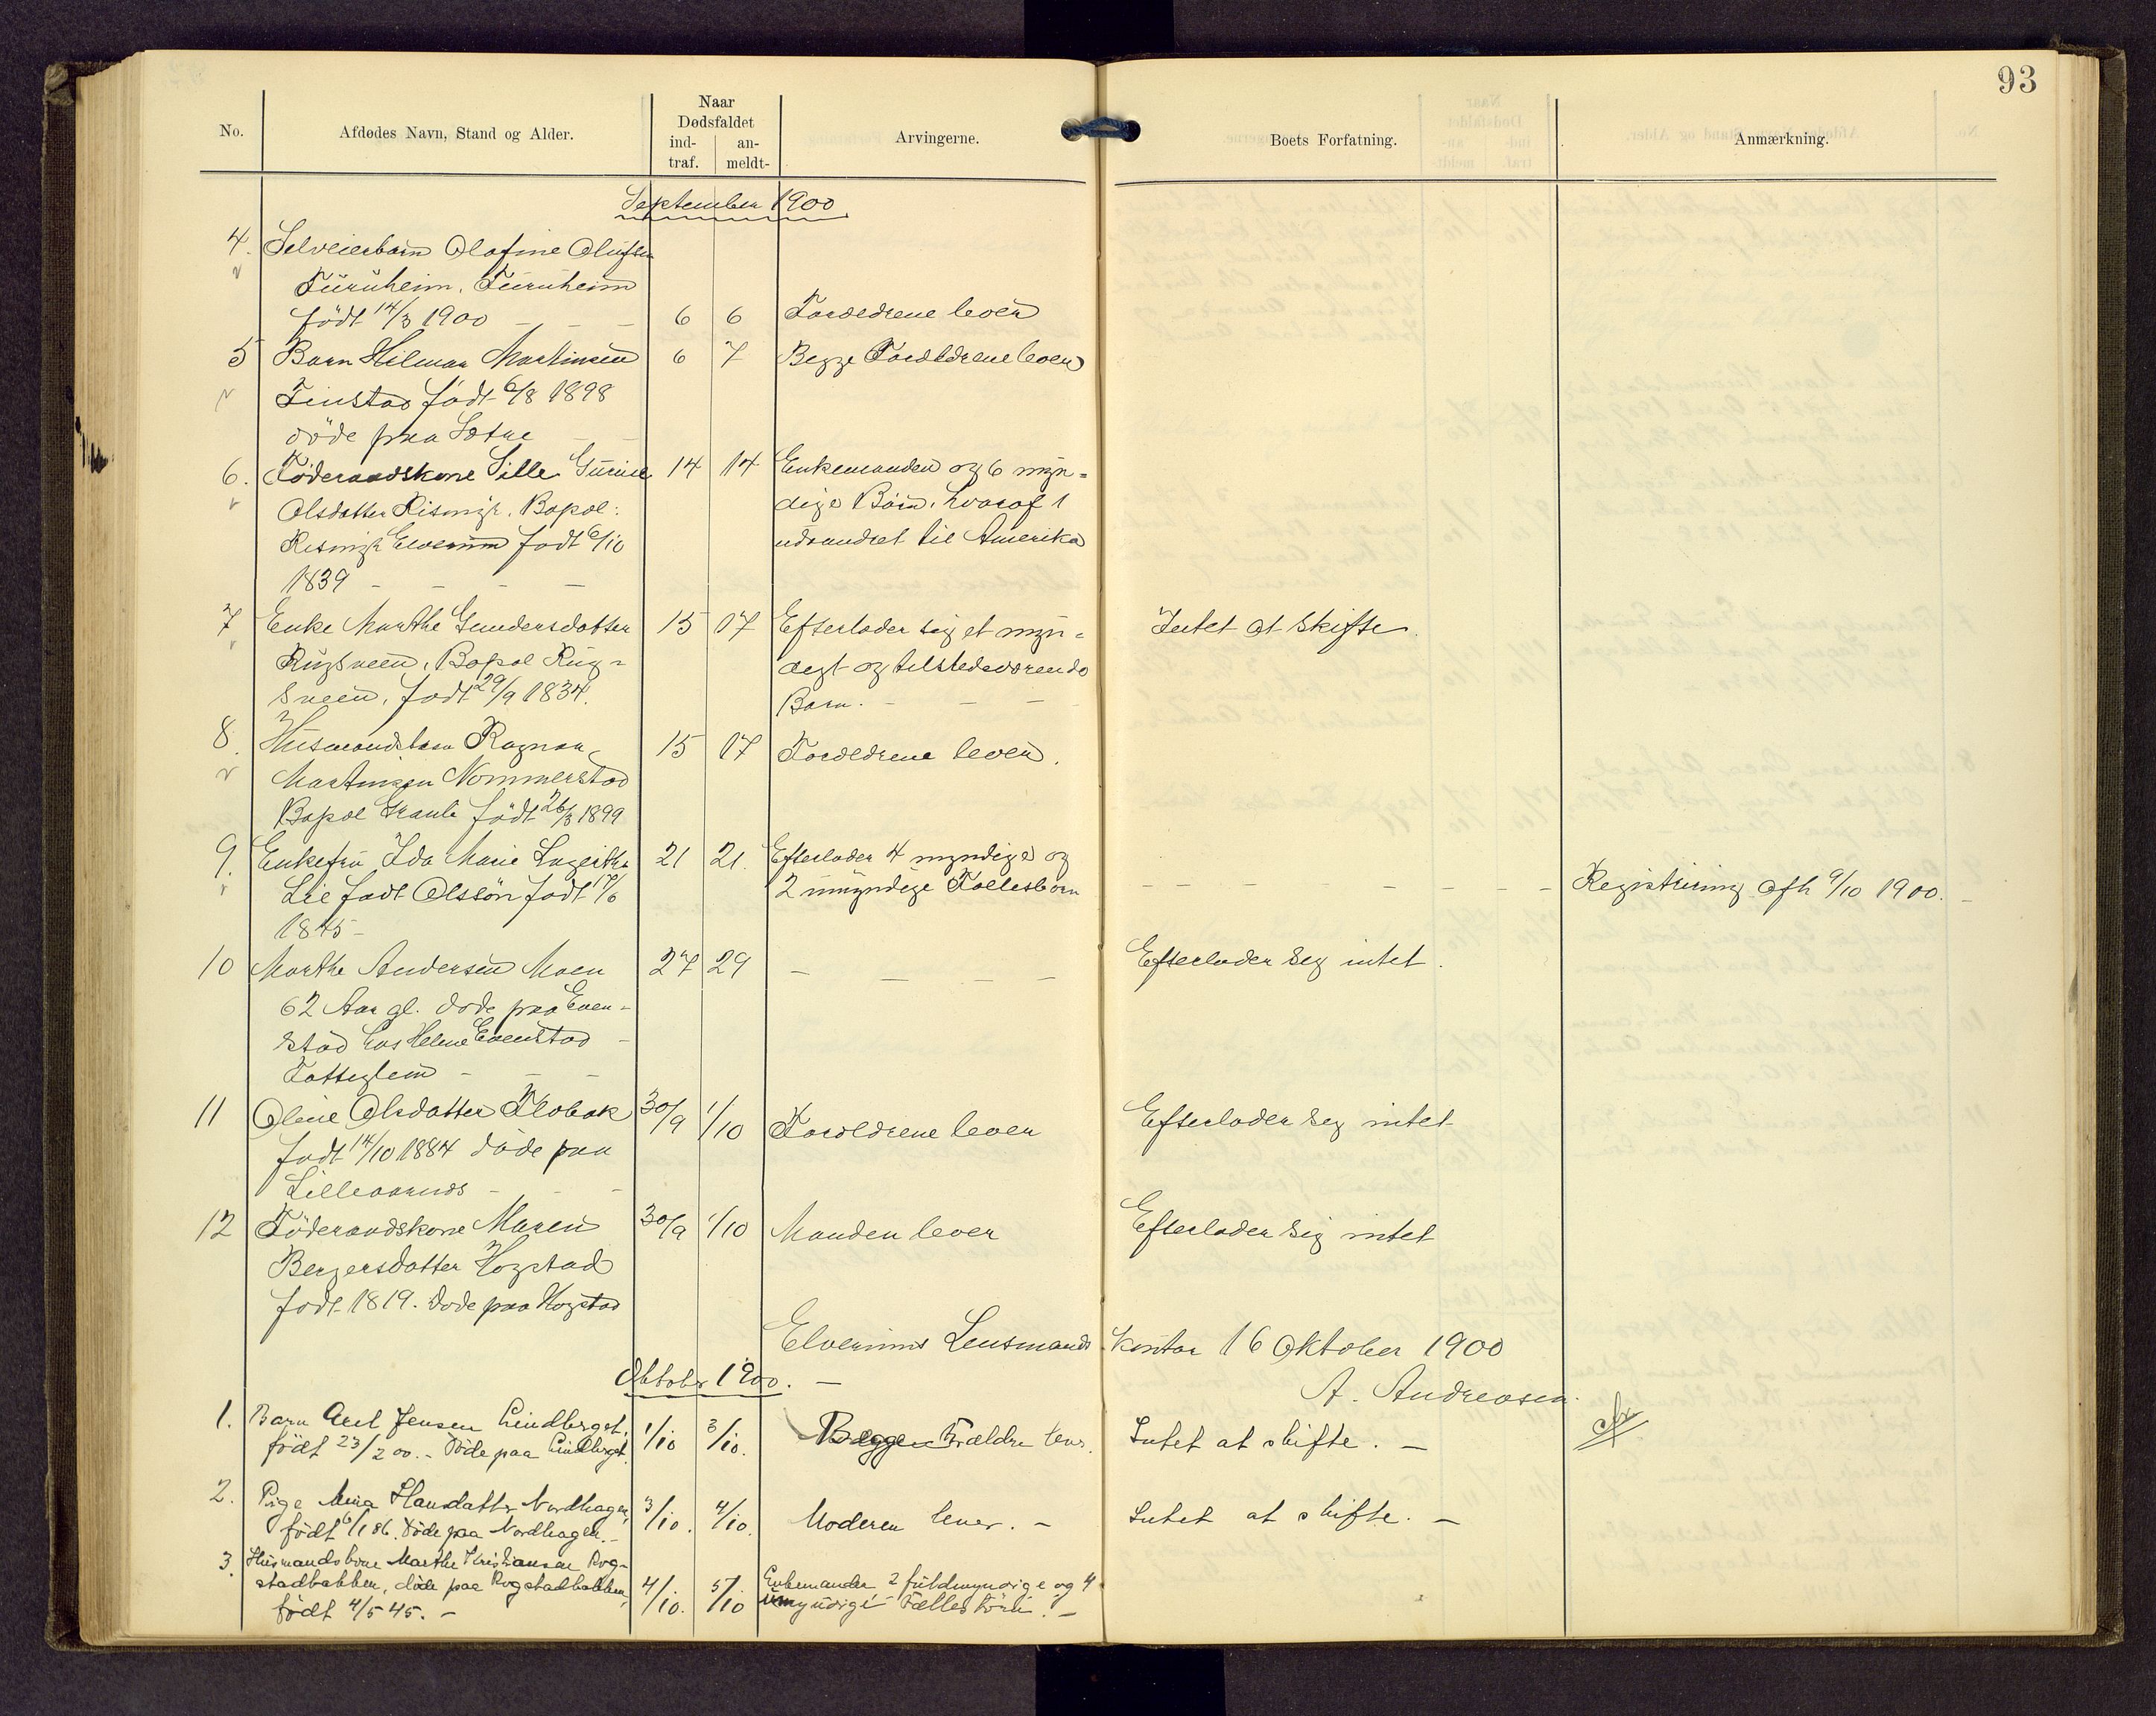 93
No. Afdødes Navn, Stand og Alder. Naar Dødsfaldet ind-traf. an-meldt- Arvingerne. Boets Forfatning. Anmærkning.
September 1900
4. Selveierbarn Olafine Olufsen
Furuheim, Furuheim
født 14/3 1900 - - - 6 6 Forældrene lever
5 Barn Hilmar Martinsen 6 7 Begge Forældrene lever
Finstad født 6/8 1898
døde paa Sætre - -
6. Föderaadskone Sille Gurine 14 14 Enkemanden og 6 myn-
Olsdatter Rismyr. Bopæl: dige Börn, hvoraf 1
Rismyr Elverum født 6/10 udvandret til Amerika
1839 - - - -
7 Enke Marthe Gundersdatter 15 17 Efterlader sig et myn- Intet at skifte.
Rugsveen, Bopæl Rug- digt og tilstedeværende
sveen, født 29/9 1834. Barn. - - -
8. Husmandsbarn Ragnar 15 17 Forældrene lever.
Martinsen Nommerstad
Bopæl Graali født 26/3 1899
9. Enkefru Ida Marie 21 21. Efterlader 4 myndige og
Lie født Olssön født 17/6 2 umyndige Fællesbörn - - - - - - - Registrering afh 9/10 1900. -
1845 -
10 Marthe Andersen Moen 27 29 - - - - Efterlader sig intet.
62 Aar gl. døde paa Even-
stad hos Helene Evenstad -
Fattiglem - - -
11 Oline Olsdatter Flobak 30/9 1/10 Forældrene lever Efterlader sig intet
født 14/10 1884 døde paa
Lilleaarnds - - -
12 Föderaadskone Maren 30/9 1/10 Manden lever Efterlader sig intet
Bergersdatter Hogstad
født 1819. døde paa Hogstad
Elverums Lensmandskontor 16 Oktober 1900
Oktober 1900. - A. Andreasen.
1. Barn Axel Jensen Lindberget, 1/10 3/10. Begge Forældre lever. Intet at skifte. -
født 23/2 00. - Döde paa Lindberget.
2. Pige Mina Hansdatter Nordhagen, 3/10. 4/10. Moderen lever. - Intet at skifte. -
født 6/1 86. Döde paa Nordhagen. -
3. Husmandskone Marthe Kristiansen Rog-
stadbakken, döde paa Rogstadbakken, 4/10. 5/10 Enkemanden, 2 fuldmyndige og 4
født 4/5 45. - umyndige Fælles börn. -